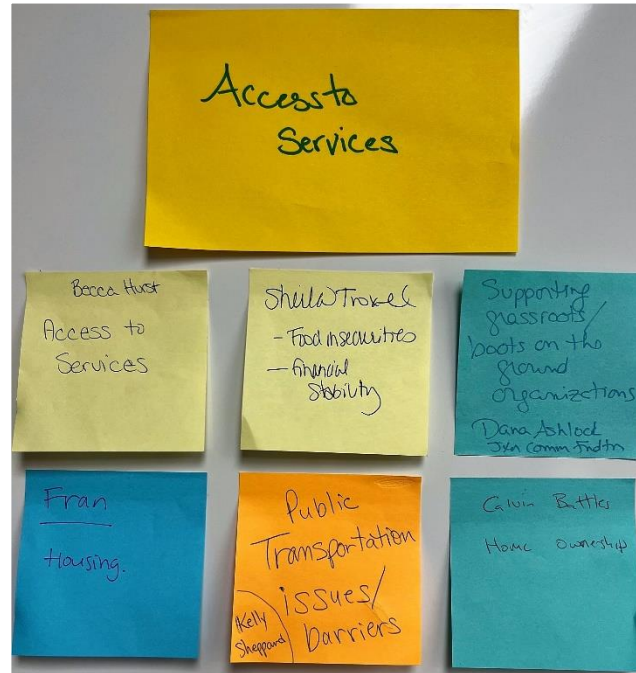 Access to
Services
Becca Hurst
Access to
Services
Sheila Troxel
- Food insecurities
- Financial
Stability
Supporting
grassroots/
boots on the
ground
organizations
Dana Ashlock
Jxn Comm Fndtn
Fran
Housing.
Public
Transportation
issues/
barriers
Kelly
Sheppard
Calvin Battles
Home Ownership